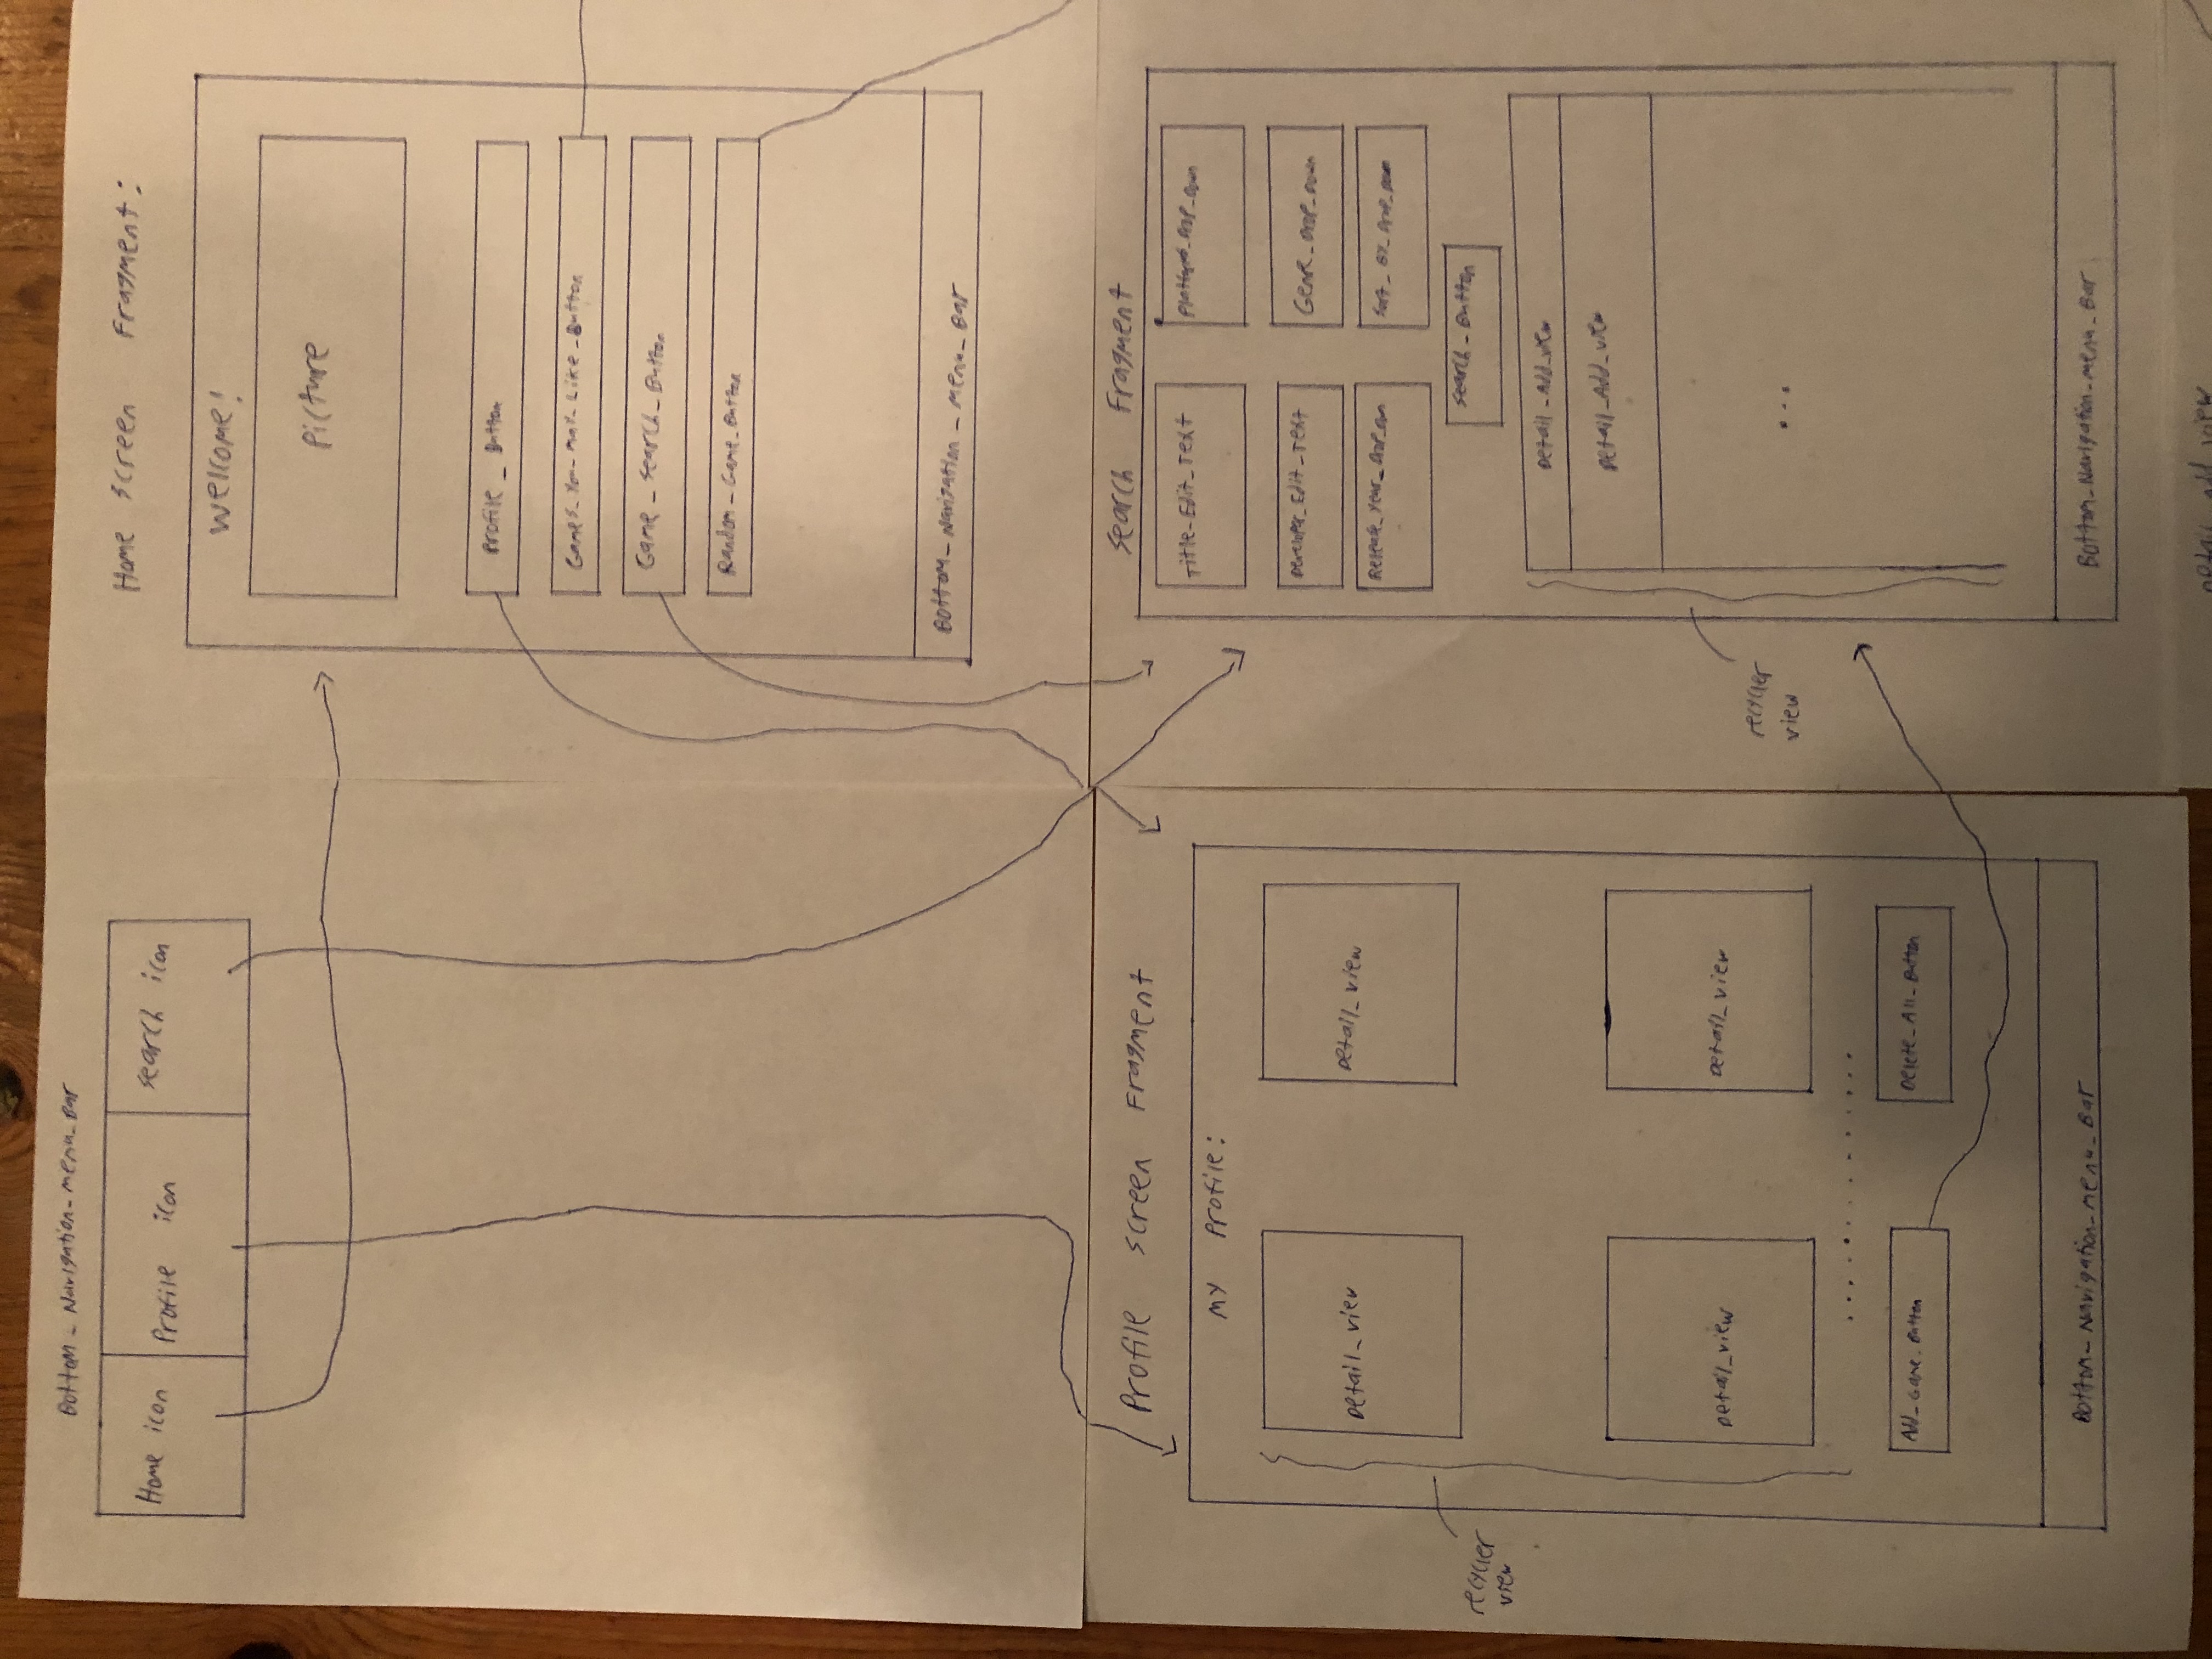 Bottom_Navigation_menu_Bar
Home icon
Profile icon
search icon
Home screen Fragment:
Welcome!
Picture
Profile_Button
Games_You_May_Like_Button
Game_Search_Button
Random_Game_Button
Bottom_Navigation_menu_Bar
Profile screen Fragment
My Profile:
Detail_view
Detail_view
recycler
view
Detail_view
Detail_view
Add_Game_Button
Delete_All_Button
Bottom_Navigation_menu_Bar
Search Fragment
Title_Edit_Text
Platform_Drop_Down
Developer_Edit_Text
Genre_Drop_Down
Release_Year_Drop_Down
Sort_By_Drop_Down
Search_Button
Detail_Add_view
Detail_Add_view
recycler
view
...
Bottom_Navigation_menu_Bar
Detail add view